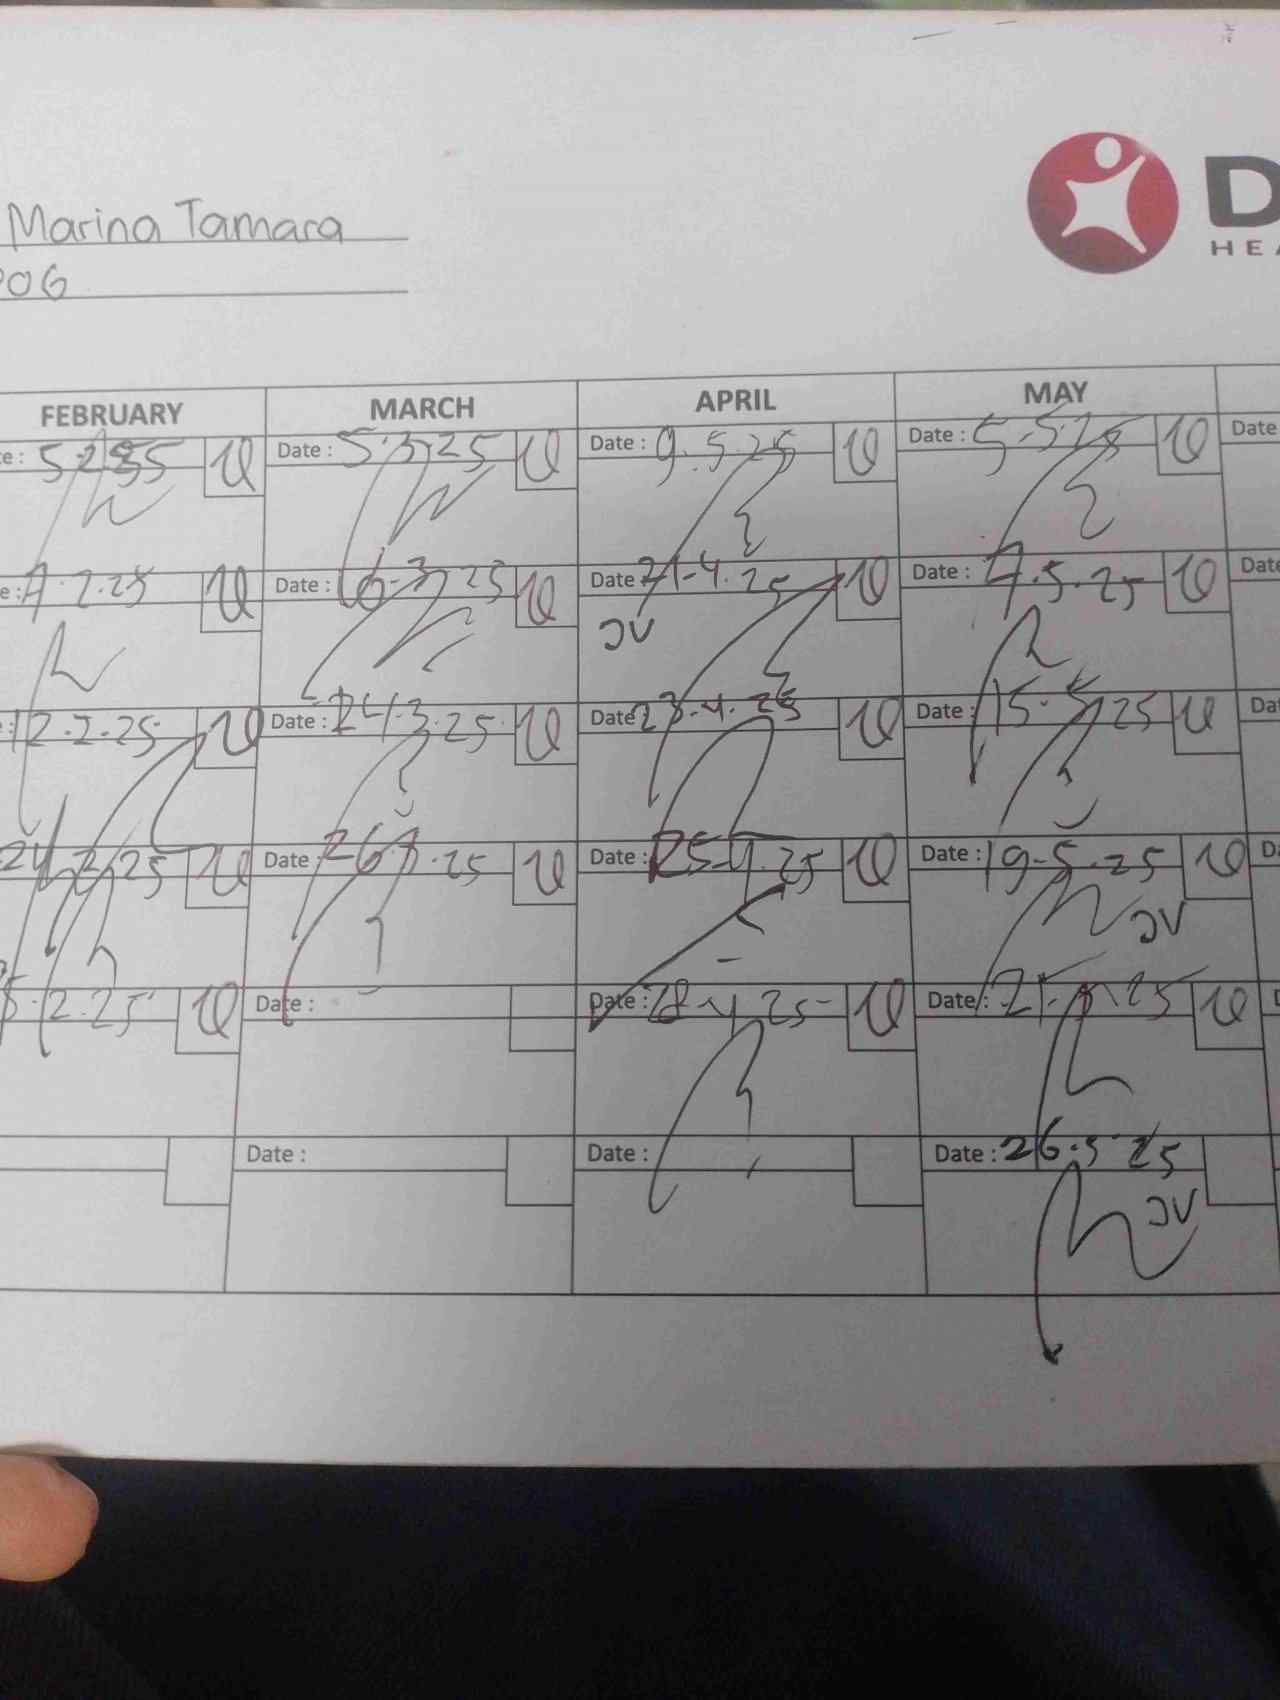 Marina Tamara
OG
D
HEA
FEBRUARY MARCH APRIL MAY
e: 5.2.25 Date : 5.3.25 Date : 9.5.25 Date : 5-5.25 Date
e: 7.2.25 Date : 6-3.25 Date 21-4.25 Date : 7.5.25 Date
JV
: 12.2.25 Date : 24.3.25 Date 23-4.25 Date : 15-5.25 Dat
24.2.25 Date : 26.3.25 Date : 25-4.25 Date : 19-5.25 Da
JV
.2.25 Date : Date : 28-4.25 Date : 21.5.25 D
Date : Date : Date : 26.5.25
JV